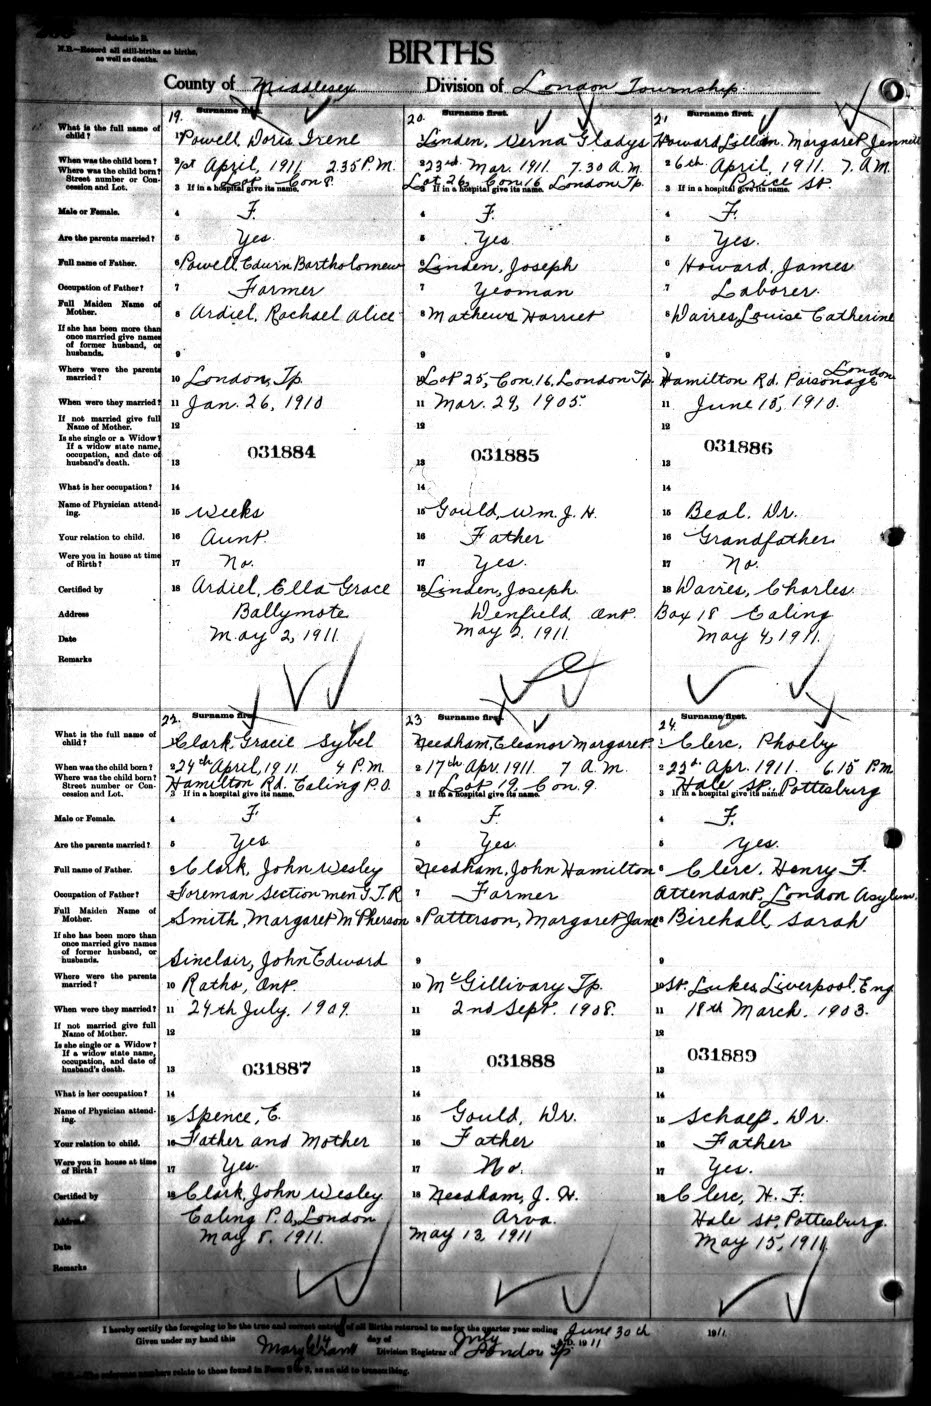 Schedule B.
N.B.—Record all still-births as births,
as well as deaths.
BIRTHS
County of Middlesex Division of London Township
19. Surname first. 20. Surname first. 21. Surname first.
What is the full name of child? 1 Powell, Doris Irene Linden, Verna Gladys Howard, Lillian Margaret Jannett
When was the child born? 2 1st April, 1911 2.35 P.M. 2 23rd Mar. 1911. 7.30 A.M. 2 6th April, 1911. 7 A.M.
Where was the child born? Street number or Concession and Lot. 3 If in a hospital give its name. Con 8. Lot 26, Con 16 London Tp. 3 If in a hospital give its name. Price St. 3 If in a hospital give its name.
Male or Female. 4 F. 4 F. 4 F.
Are the parents married? 5 Yes 5 Yes. 5 Yes.
Full name of Father. 6 Powell, Edwin Bartholomew 6 Linden, Joseph 6 Howard, James
Occupation of Father? 7 Farmer 7 Yeoman 7 Laborer.
Full Maiden Name of Mother. 8 Ardiel, Rachael Alice 8 Mathews Harriet 8 Davies, Louise Catherine
If she has been more than once married give names of former husband, or husbands. 9 9 9
Where were the parents married? 10 London, Tp. 10 Lot 25, Con. 16, London Tp. 10 Hamilton Rd. Parsonage London
When were they married? 11 Jan. 26, 1910 11 Mar. 29, 1905. 11 June 15, 1910.
If not married give full Name of Mother. 12 12 12
Is she single or a Widow? If a widow state name, occupation, and date of husband's death. 13 031884 13 031885 13 031886
What is her occupation? 14 14 14
Name of Physician attending. 15 Weeks 15 Gould, Wm. J. H. 15 Beal. Dr.
Your relation to child. 16 Aunt. 16 Father 16 Grandfather
Were you in house at time of Birth? 17 No. 17 Yes. 17 No.
Certified by 18 Ardiel, Ella Grace 18 Linden, Joseph 18 Davies, Charles
Address Ballymote Denfield, Ont. Box 18 Ealing
Date May 2, 1911. May 2, 1911. May 4, 1911.
Remarks
22. Surname first. 23 Surname first. 24. Surname first.
What is the full name of child? 1 Clark, Gracie Sybel Needham, Eleanor Margaret 1 Clerc, Phoeby
When was the child born? 2 24th April, 1911. 4 P.M. 2 17th Apr. 1911. 7 A.M. 2 Apr. 1911. 6.15 P.M.
Where was the child born? Street number or Concession and Lot. Hamilton Rd. Ealing P.O. 3 If in a hospital give its name. Lot 19, Con 9. 3 If in a hospital give its name. Hale St. Pottesburg 3 If in a hospital give its name.
Male or Female. 4 F. 4 F. 4 F.
Are the parents married? 5 Yes 5 Yes. 5 Yes.
Full name of Father. 6 Clark, John Wesley Needham, John Hamilton 6 Clerc, Henry F.
Occupation of Father? 7 Foreman Section men G.T.R 7 Farmer Attendant, London Asylum.
Full Maiden Name of Mother. Smith, Margaret McPherson 8 Patterson, Margaret Jane 8 Birchall, Sarah
If she has been more than once married give names of former husband, or husbands. Sinclair, John Edward 9 9
Where were the parents married? 10 Ratho, Ont. 10 McGillivary Tp. 10 St. Lukes, Liverpool, Eng
When were they married? 11 24th July, 1909. 11 2nd Sept. 1908. 11 18th March. 1903.
If not married give full Name of Mother. 12 12 12
Is she single or a Widow? If a widow state name, occupation, and date of husband's death. 13 031887 13 031888 13 031889
What is her occupation? 14 14 14
Name of Physician attending. 15 Spence, E. 15 Gould, Dr. 15 Dr.
Your relation to child. 16 Father and Mother 16 Father 16 Father
Were you in house at time of Birth? 17 Yes. 17 No. 17 Yes.
Certified by 18 Clark, John Wesley 18 Needham, J. H. 18 Clerc, H. F.
Address Ealing P.O., London Arva. Hale St. Pottesburg.
Date May 8, 1911. May 13, 1911 May 15, 1911.
Remarks
I hereby certify the foregoing to be the true and correct entries of all Births returned to me for the quarter year ending June 30th 1911.
Given under my hand this day of July A.D. 1911
Mary Grant Division Registrar of London Tp